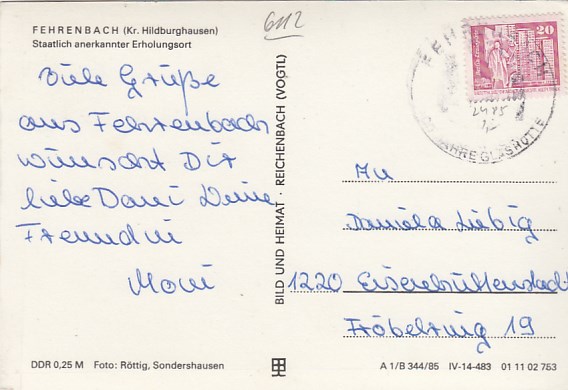 FEHRENBACH (Kr. Hildburghausen)
Staatlich anerkannter Erholungsort
6112
Viele Grüße
aus Fehrenbach
wünscht Dir
liebe Dani Deine
Freundin
Moni
BILD UND HEIMAT · REICHENBACH (VOGTL)
20
JAHRE GLASHÜTTE
An
Daniela Liebig
1220 Eisenhüttenstadt
Fröbelring 19
DDR 0,25 M Foto: Röttig, Sondershausen
A 1/B 344/85 IV-14-483 01 11 02 753